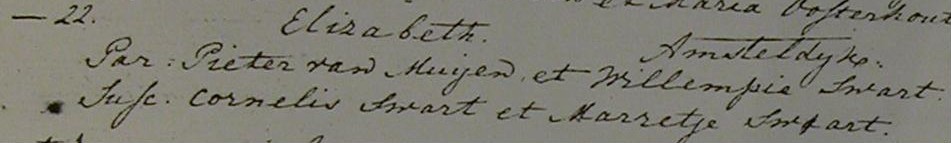 et Maria Oosterhout
— 22. Elizabeth. Amsteldyk.
Par: Pieter van Muijen et Willempie Swart.
Susc. Cornelis Swart et Marretje Swart.